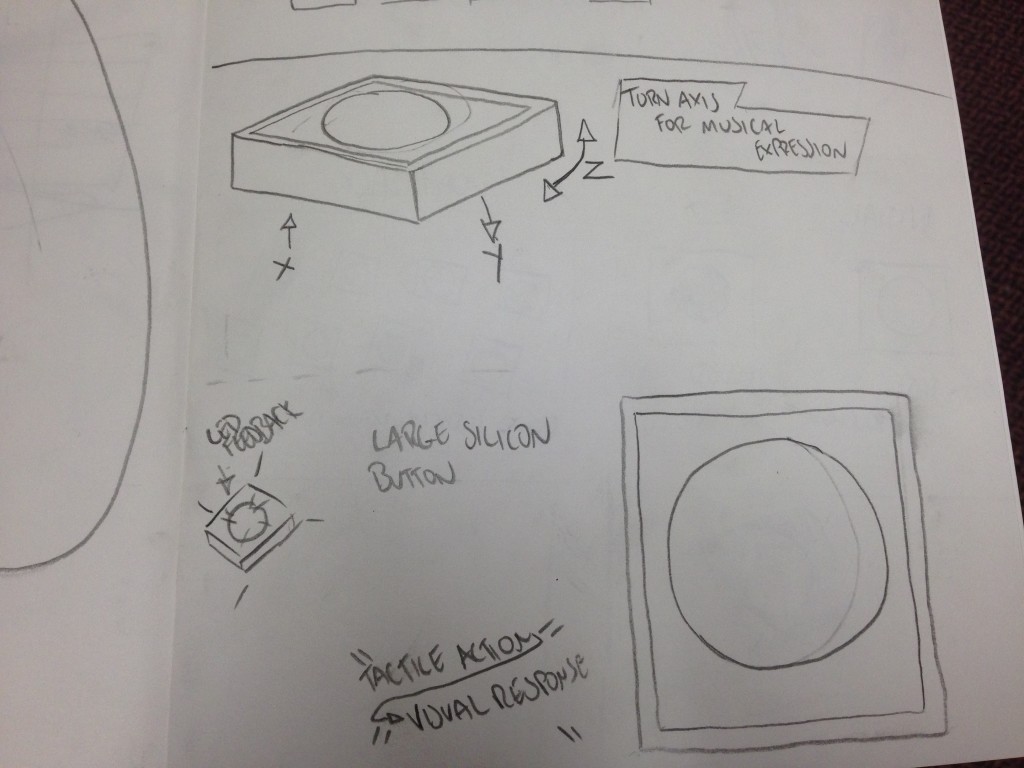 TURN AXIS
FOR MUSICAL
EXPRESSION
Z
X
Y
LED
FEEDBACK
LARGE SILICON
BUTTON
"TACTILE ACTION
VOVAL RESPONSE"